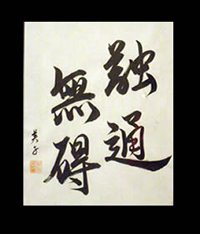 融通
無碍